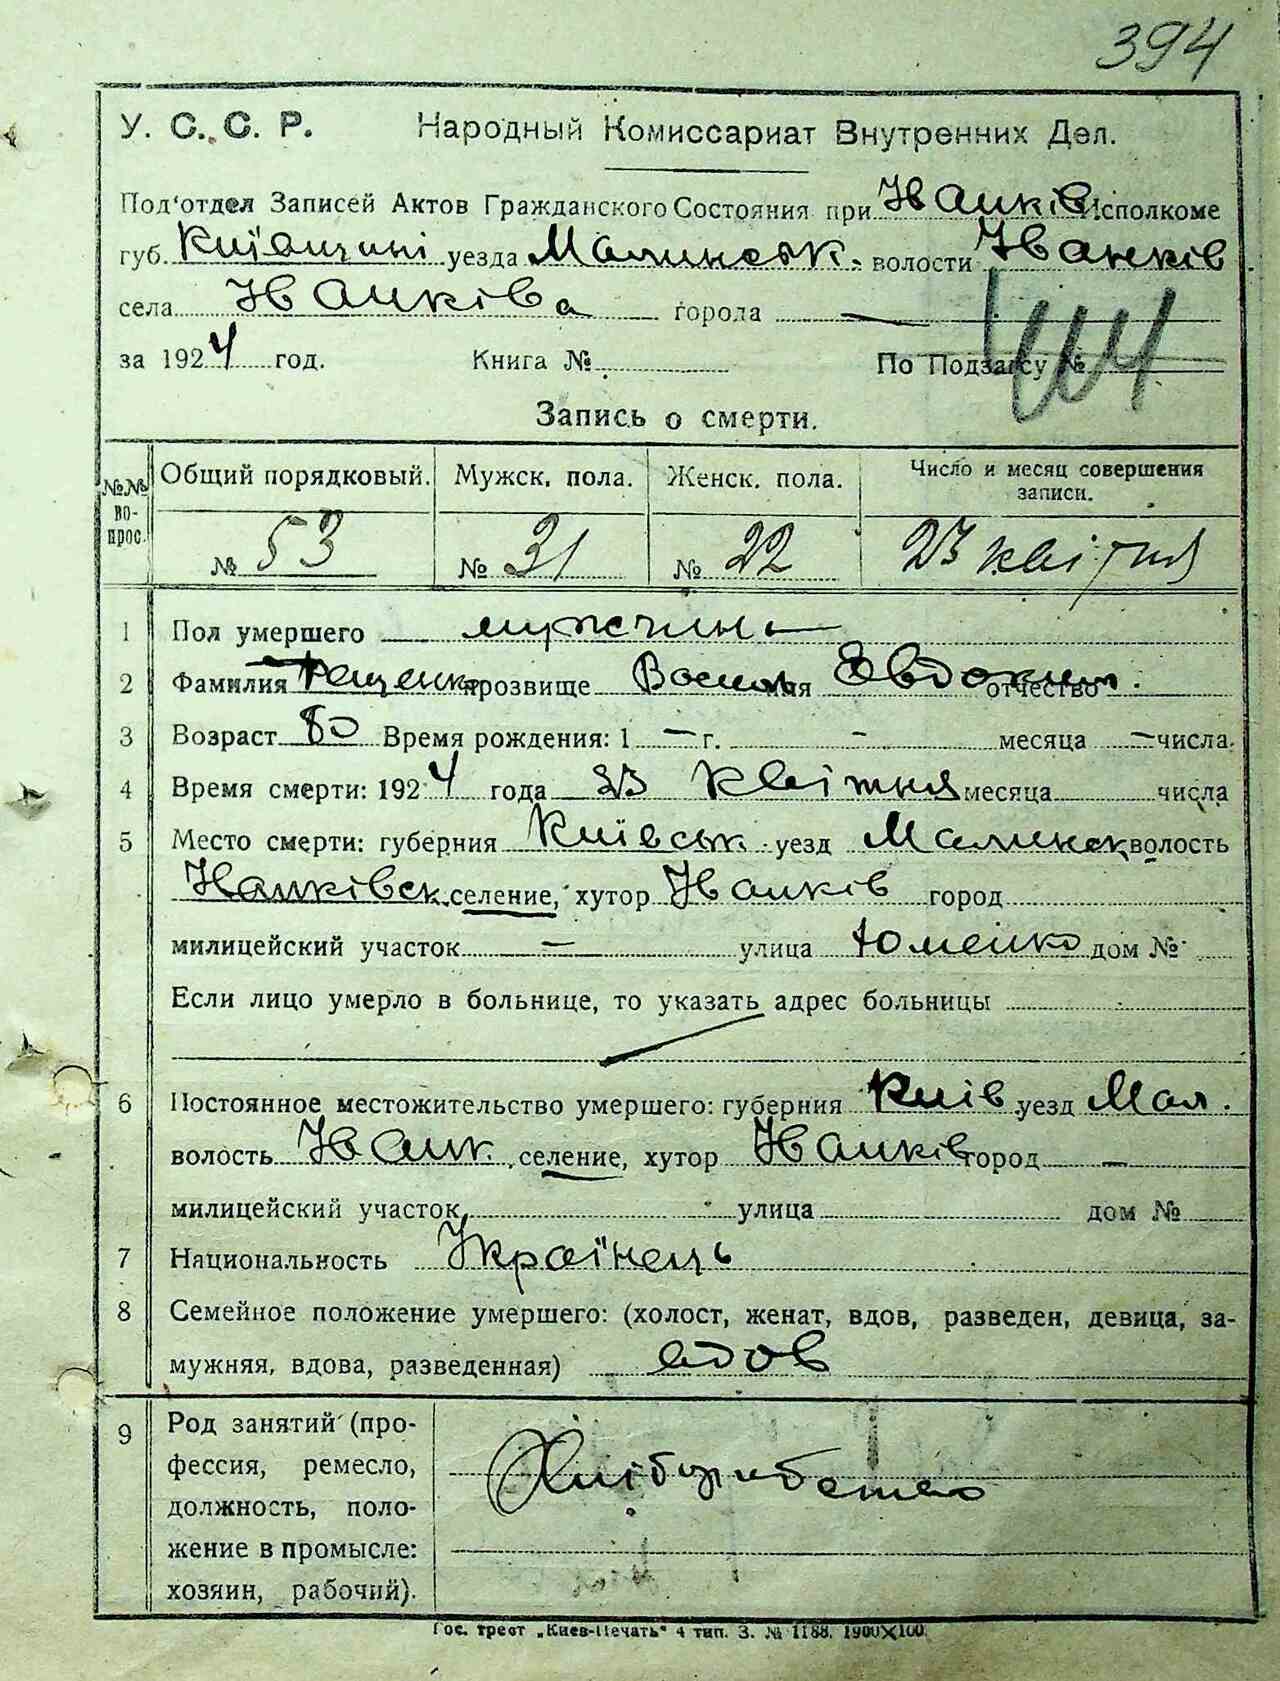 394
У. С. С. Р. Народный Комиссариат Внутренних Дел.
Под'отдел Записей Актов Гражданского Состояния при Іванків Исполкоме
губ. Київщині уезда Малинськ. волости Іванків
села Іванківа города —
за 1924 год. Книга № По Подзагсу №
Запись о смерти.
№№ во-прос. Общий порядковый. Мужск. пола. Женск. пола. Число и месяц совершения записи.
№ 53 № 31 № 22 23 квітня
1 Пол умершего мужчина
2 Фамилия прозвище имя Евдоким. отчество
3 Возраст 80 Время рождения: 1 — г. - месяца — числа.
4 Время смерти: 1924 года 23 квітня месяца числа
5 Место смерти: губерния Київськ. уезд Малинськ. волость
Іванківськ. селение, хутор Іванків город
милицейский участок = улица дом №
Если лицо умерло в больнице, то указать адрес больницы
6 Постоянное местожительство умершего: губерния Київ. уезд Мал.
волость Іванк. селение, хутор Іванків город —
милицейский участок улица дом №
7 Национальность Українець
8 Семейное положение умершего: (холост, женат, вдов, разведен, девица, за-
мужняя, вдова, разведенная) вдов
9 Род занятий (про-
фессия, ремесло,
должность, поло-
жение в промысле:
хозяин, рабочий).
Гос. трест „Киев-Печать“ 4 тип. З. № 1188. 1900×100.